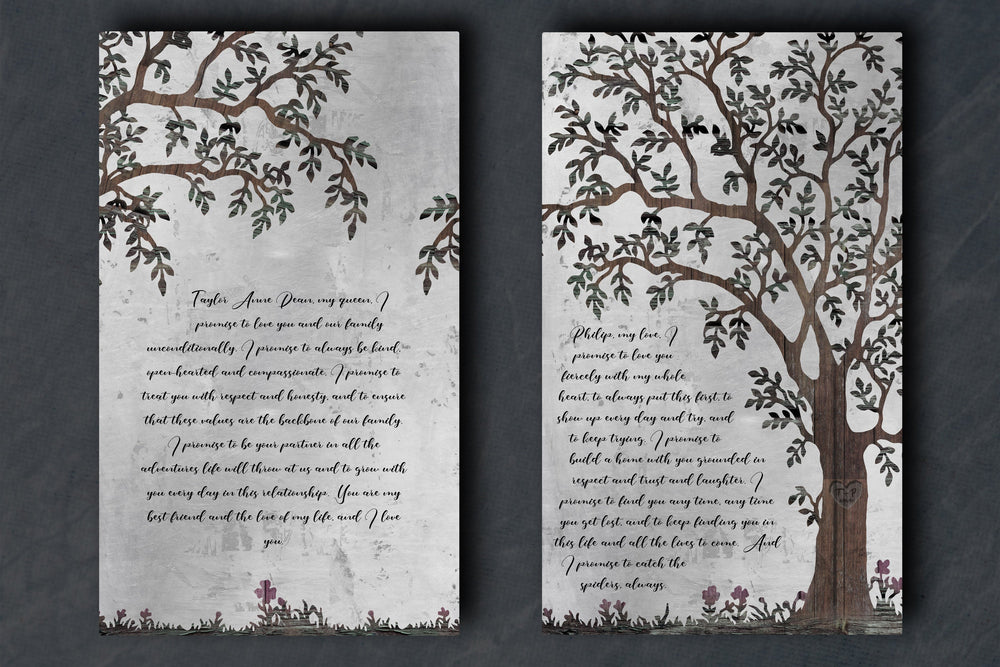 Taylor Anne Dean, my queen, I
promise to love you and our family
unconditionally. I promise to always be kind,
open-hearted and compassionate. I promise to
treat you with respect and honesty, and to ensure
that these values are the backbone of our family.
I promise to be your partner in all the
adventures life will throw at us and to grow with
you every day in this relationship. You are my
best friend and the love of my life, and I love
you.
Philip, my love, I
promise to love you
fiercely with my whole
heart, to always put this first, to
show up every day and try, and
to keep trying. I promise to
build a home with you grounded in
respect and trust and laughter. I
promise to find you any time, any time
you get lost, and to keep finding you in
this life and all the lives to come. And
I promise to catch the
spiders, always.